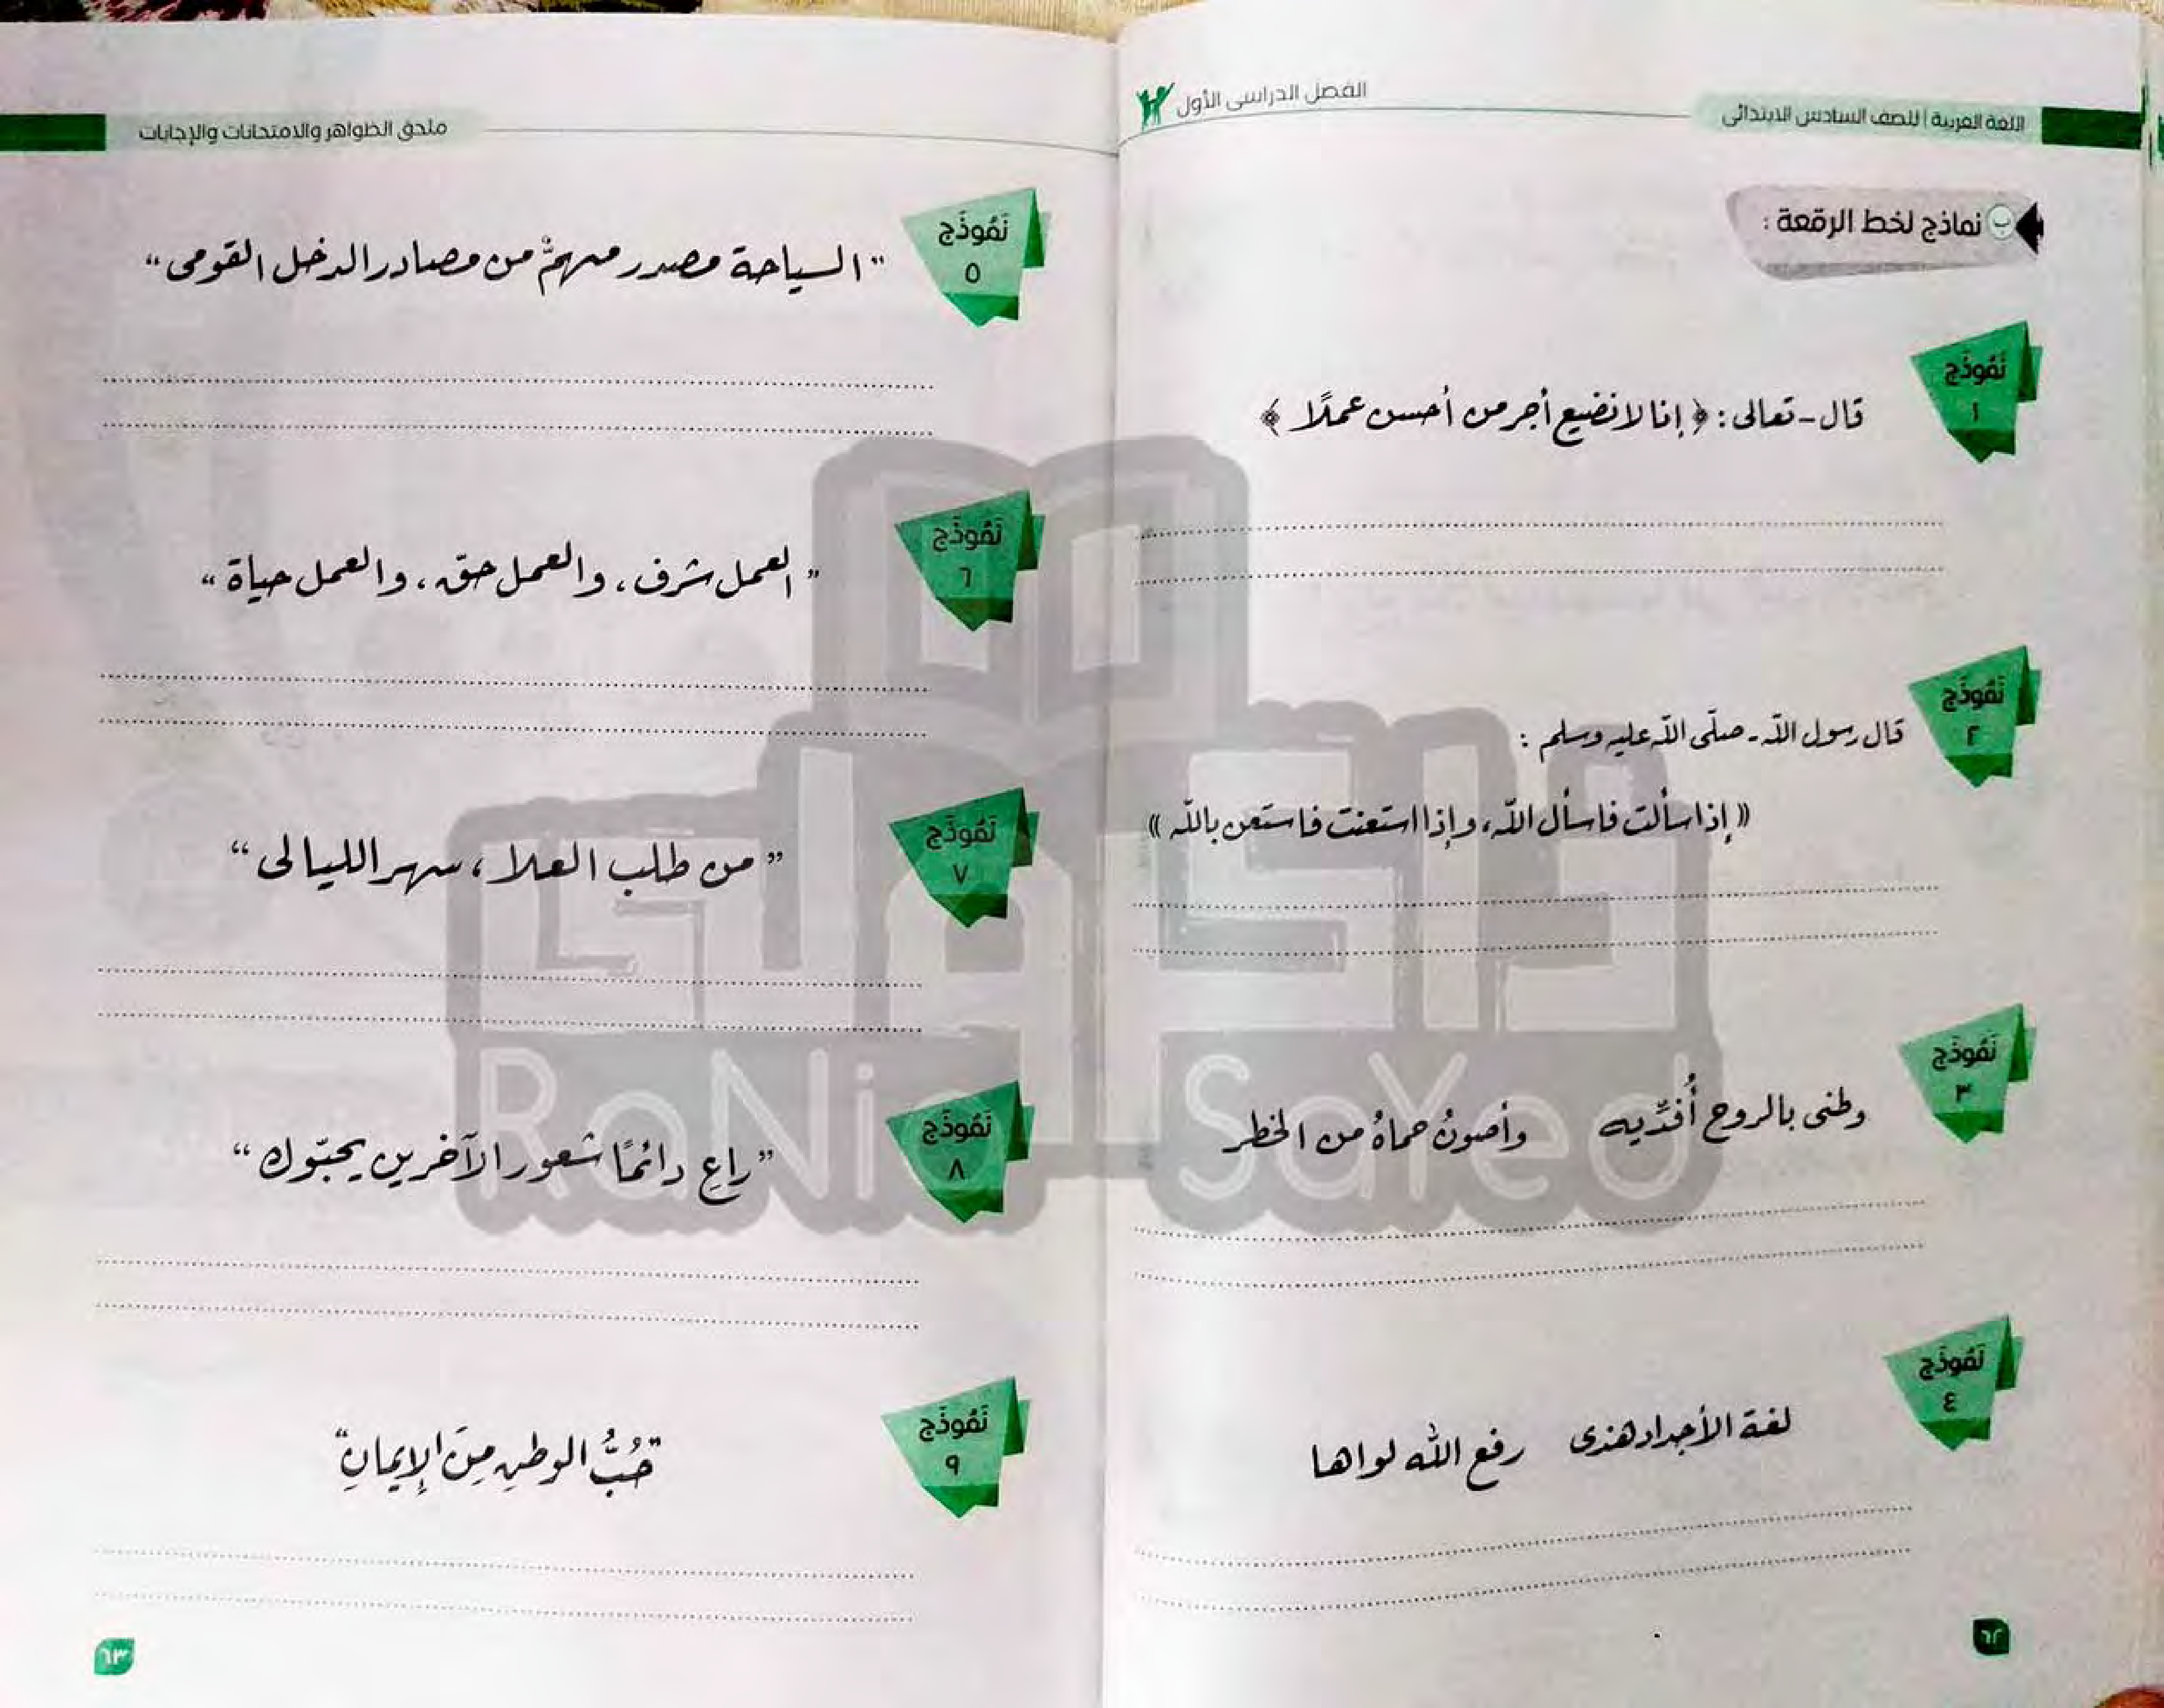 اللغة العربية | للصف السادس الابتدائى
الفصل الدراسى الأول
ب نماذج لخط الرقعة :
نَمُوذَج
١
قال - تعالى : ﴿ إنا لا نضيع أجر من أحسن عملًا ﴾
نَمُوذَج
٢
قال رسول اللّه - صلّى اللّه عليه وسلم :
(( إذا سألت فاسأل اللّه، وإذا استعنت فاستعن باللّه ))
نَمُوذَج
٣
وطنى بالروح أُفدِّيه وأصونُ حماهُ من الخطر
نَمُوذَج
٤
لغة الأجداد هذى رفع الله لواها
٦٢
ملحق الظواهر والامتحانات والإجابات
نَمُوذَج
٥
" السياحة مصدر مهمٌّ من مصادر الدخل القومى "
نَمُوذَج
٦
" العمل شرف، والعمل حقّ، والعمل حياة "
نَمُوذَج
٧
" من طلب العلا، سهر الليالى "
نَمُوذَج
٨
" راعِ دائمًا شعور الآخرين يحبّوك "
نَمُوذَج
٩
"حُبُّ الوطنِ مِنَ الإيمانِ"
٦٣
راكالىا
RaNia SaYed